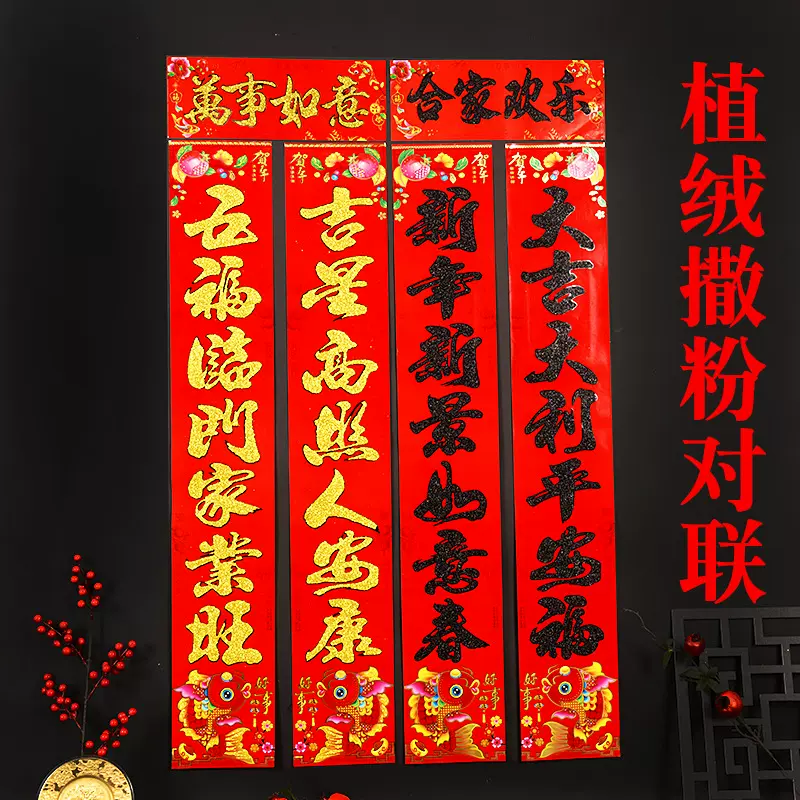 萬事如意
合家欢乐
五福臨门家業旺
吉星高照人安康
新年新景如意春
大吉大利平安福
贺年
贺年
贺年
贺年
好事
好事
好事
好事
植绒撒粉对联